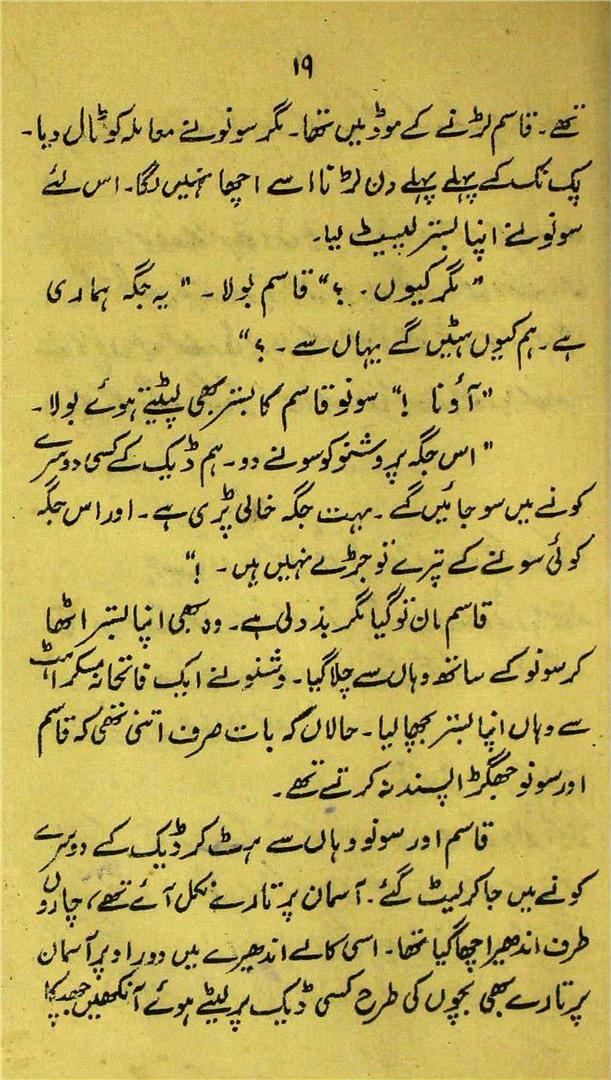 ۱۹
تھے۔ قاسم لڑنے کے موڈ میں تھا۔ مگر سونو نے معاملہ کو ٹال دیا۔
پک نک کے پہلے پہلے دن لڑنا اسے اچھا نہیں لگا۔ اس لئے
سونو نے اپنا بستر لپیٹ لیا۔
"مگر کیوں۔ ؟" قاسم بولا۔ "یہ جگہ ہماری
ہے۔ ہم کیوں ہٹیں گے یہاں سے۔ ؟"
"آؤ نا !" سونو قاسم کا بستر بھی لپٹیتے ہوئے بولا۔
"اس جگہ پر وشنو کو سونے دو۔ ہم ڈیک کے کسی دوسرے
کونے میں سو جائیں گے۔ بہت جگہ خالی پڑی ہے۔ اور اس جگہ
کوئی سونے کے پترے تو جڑے نہیں ہیں۔ !"
قاسم مان تو گیا مگر بد دلی سے۔ وہ بھی اپنا بستر اٹھا
کر سونو کے ساتھ وہاں سے چلا گیا۔ وشنو نے ایک فاتحانہ مسکراہٹ
سے وہاں اپنا بستر بچھا لیا۔ حالاں کہ بات صرف اتنی تھی کہ قاسم
اور سونو جھگڑا پسند نہ کرتے تھے۔
قاسم اور سونو وہاں سے ہٹ کر ڈیک کے دوسرے
کونے میں جا کر لیٹ گئے۔ آسمان پر تارے نکل آئے تھے، چاروں
طرف اندھیرا چھا گیا تھا۔ اسی کالے اندھیرے میں دور اوپر آسمان
پر تارے بھی بچوں کی طرح کسی ڈیک پر لیٹے ہوئے آنکھیں جھپکا